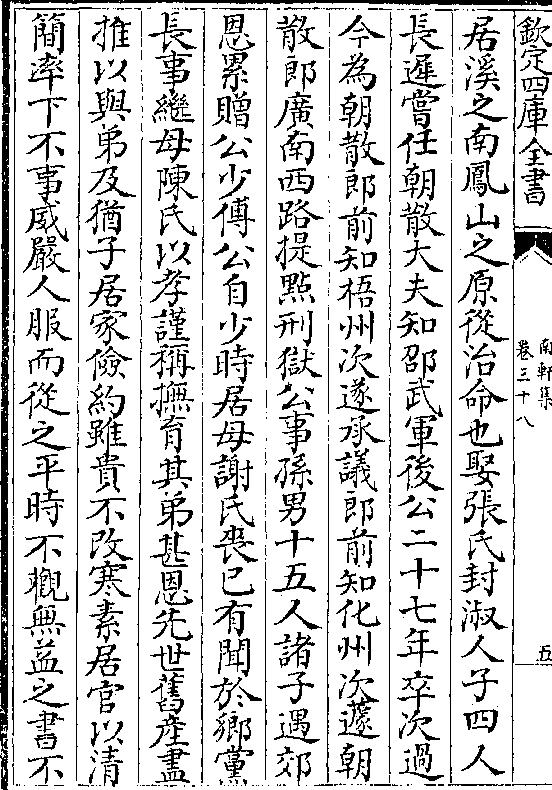 欽定四庫全書
南軒集
卷三十八
五
居溪之南鳳山之原從治命也娶張氏封淑人子四人
長遲嘗任朝散大夫知邵武軍後公二十七年卒次過
今為朝散郎前知梧州次遂承議郎前知化州次蘧朝
散郎廣南西路提點刑獄公事孫男十五人諸子遇郊
恩累贈公少傅公自少時居母謝氏喪已有聞於鄉黨
長事繼母陳氏以孝謹稱撫育其弟甚恩先世舊產盡
推以與弟及猶子居家儉約雖貴不改寒素居官以清
簡率下不事威嚴人服而從之平時不觀無益之書不